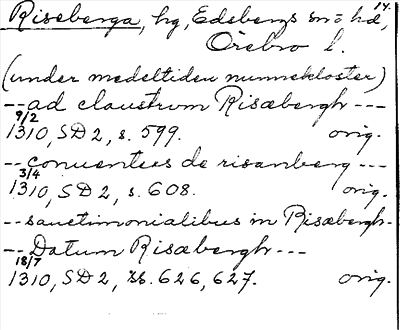 14.
Riseberga, hg, Edsbergs sn o hd,
Örebro l.
(under medeltiden nunnekloster)
-- ad claustrum Risæbergh ---
9/2
1310, SD 2, s. 599. orig.
-- conuentus de risanberg ---
3/4
1310, SD 2, s. 608. orig.
-- sanctimonialibus in Risæbergh-
-- Datum Risæbergh ---
18/7
1310, SD 2, ss. 626, 627. orig.